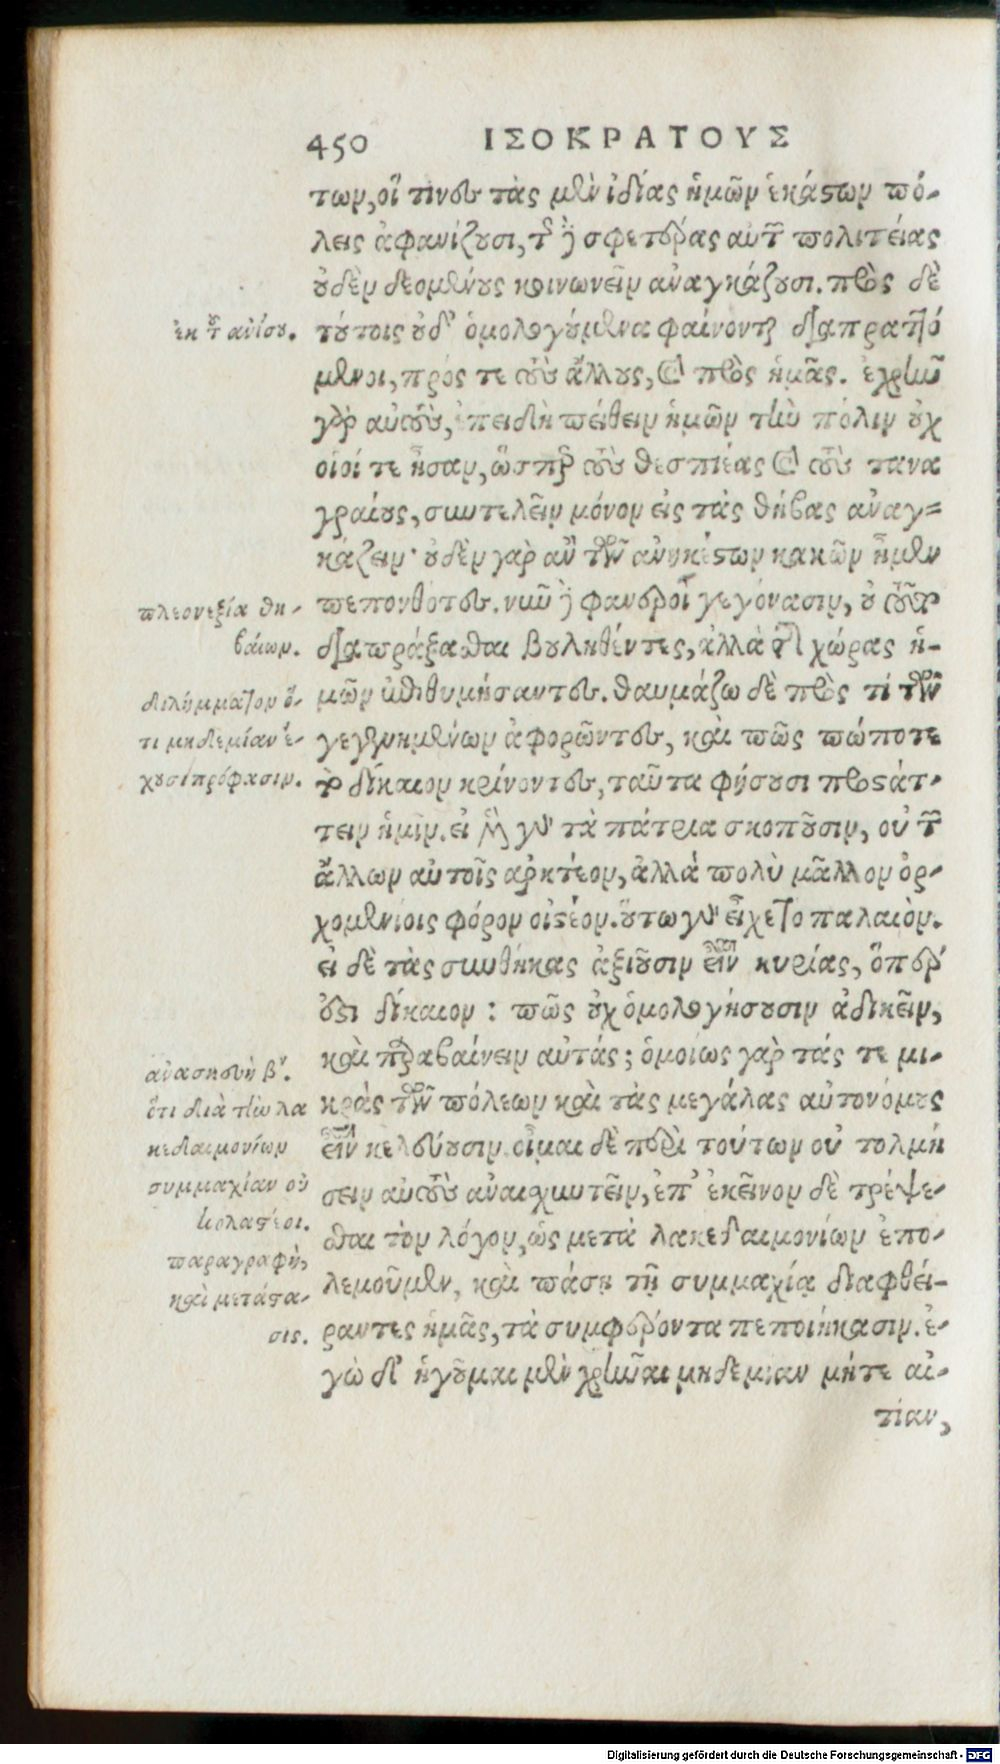 450 ΙΣΟΚΡΑΤΟΥΣ
των, οἵ τινες τὰς μὲν ἰδίας ἡμῶν ἑκάστων πό-
λεις ἀφανίζουσι, τῆς δὲ σφετέρας αὐτῶν πολιτείας
οὐδὲν δεομένους κοινωνεῖν ἀναγκάζουσι. πρὸς δὲ
τούτοις οὐδ' ὁμολογούμενα φαίνονται διαπραττό
μενοι, πρός τε τοὺς ἄλλους, καὶ πρὸς ἡμᾶς. ἐχρῆν
γὰρ αὐτοὺς, ἐπειδὴ πείθειν ἡμῶν τὴν πόλιν οὐχ
οἷοί τε ἦσαν, ὥσπερ τοὺς θεσπιέας καὶ τοὺς τανα
γραίους, συντελεῖν μόνον εἰς τὰς θήβας ἀναγ=
κάζειν· οὐδὲν γὰρ ἂν τῶν ἀνηκέστων κακῶν ἦμεν
πεπονθότες. νῦν δὲ φανεροὶ γεγόνασιν, οὐ τοῦτο
διαπράξασθαι βουληθέντες, ἀλλὰ τῆς χώρας ἡ-
μῶν ἐπιθυμήσαντες. θαυμάζω δὲ πρὸς τί τῶν
γεγενημένων ἀφορῶντες, καὶ πῶς πώποτε
τὸ δίκαιον κρίνοντες, ταῦτα φήσουσι προστάτ-
τειν ἡμῖν. εἰ μὲν γὰρ τὰ πάτρια σκοποῦσιν, οὐ τῶν
ἄλλων αὐτοῖς ἀρκτέον, ἀλλὰ πολὺ μᾶλλον ὀρ-
χομενίοις φόρον οἰστέον. οὕτω γὰρ εἶχε τὸ παλαιὸν.
εἰ δὲ τὰς συνθήκας ἀξιοῦσιν εἶναι κυρίας, ὅπερ
ἐστὶ δίκαιον : πῶς οὐχ ὁμολογήσουσιν ἀδικεῖν,
καὶ παραβαίνειν αὐτάς; ὁμοίως γὰρ τάς τε μι-
κρὰς τῶν πόλεων καὶ τὰς μεγάλας αὐτονόμους
εἶναι κελεύουσιν. οἶμαι δὲ περὶ τούτων οὐ τολμή
σειν αὐτοὺς ἀναισχυντεῖν, ἐπ' ἐκεῖνον δὲ τρέψε-
σθαι τὸν λόγον, ὡς μετὰ λακεδαιμονίων ἐπο-
λεμοῦμεν, καὶ πάσῃ τῇ συμμαχίᾳ διαφθεί-
ραντες ἡμᾶς, τὰ συμφέροντα πεποιήκασιν. ἐ-
γὼ δ' ἡγοῦμαι μὲν χρῆναι μηδεμίαν μήτε αἰ-
τίαν,
ἐκ τοῦ ἀνίσου.
πλεονεξία θη-
βαίων.
διλήμματον ὅ-
τι μηδεμίαν ἔ-
χουσι πρόφασιν.
ἀνασκευὴ β΄.
ὅτι διὰ τὴν λα
κεδαιμονίων
συμμαχίαν οὐ
κολαστέοι.
παραγραφὴ,
καὶ μετάστα-
σις.
Digitalisierung gefördert durch die Deutsche Forschungsgemeinschaft - DFG